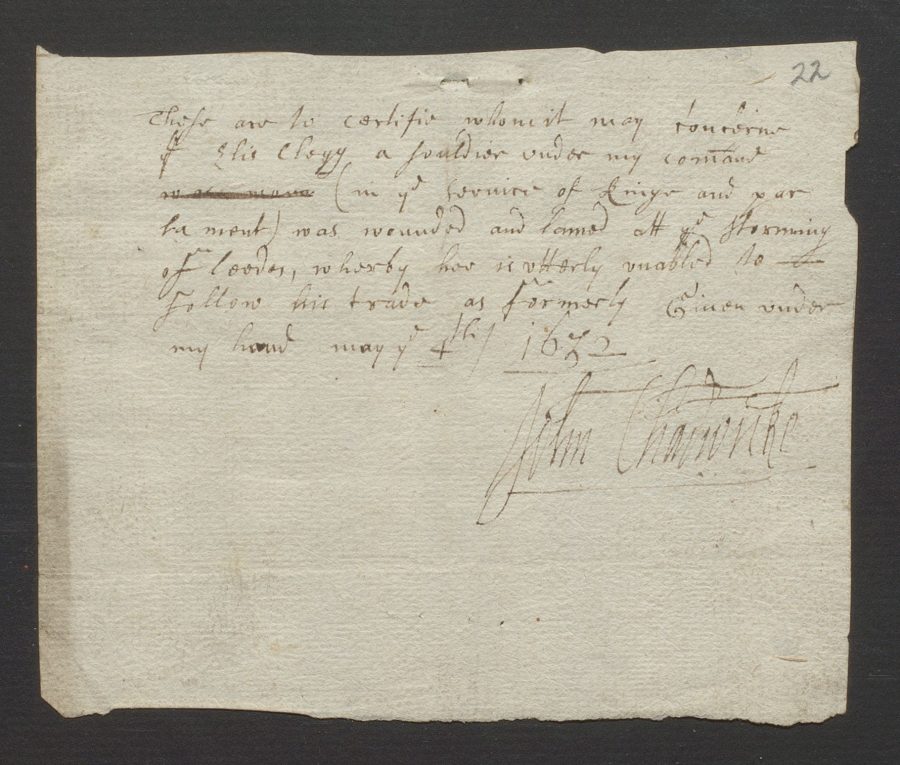 22
These are to certifie whom it may concerne
yt Elis Clegg a souldier under my comand
(in ye service of Kinge and par
lament) was wounded and lamed att ye storming
of Leedes, wherby hee is utterly unabled to
follow his trade as formerly Given under
my hand may ye 4th 1652
John Chadwicke